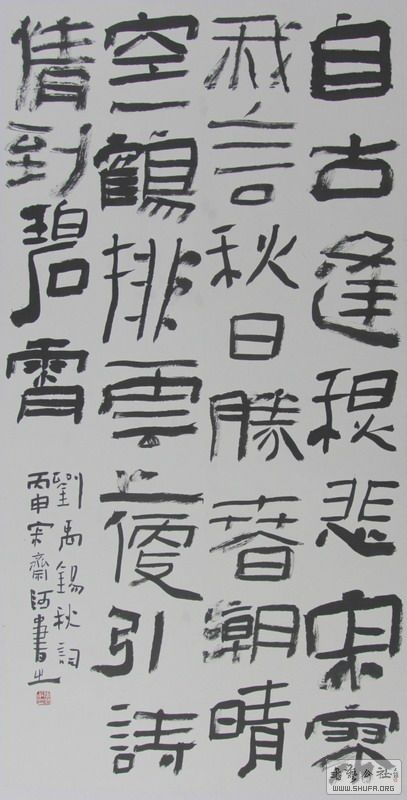 自古逢秋悲寂寥
我言秋日勝春朝晴
空一鶴排雲上便引詩
情到碧霄
劉禹錫秋詞
丙申齋書之
WWW.SHUFA.ORG